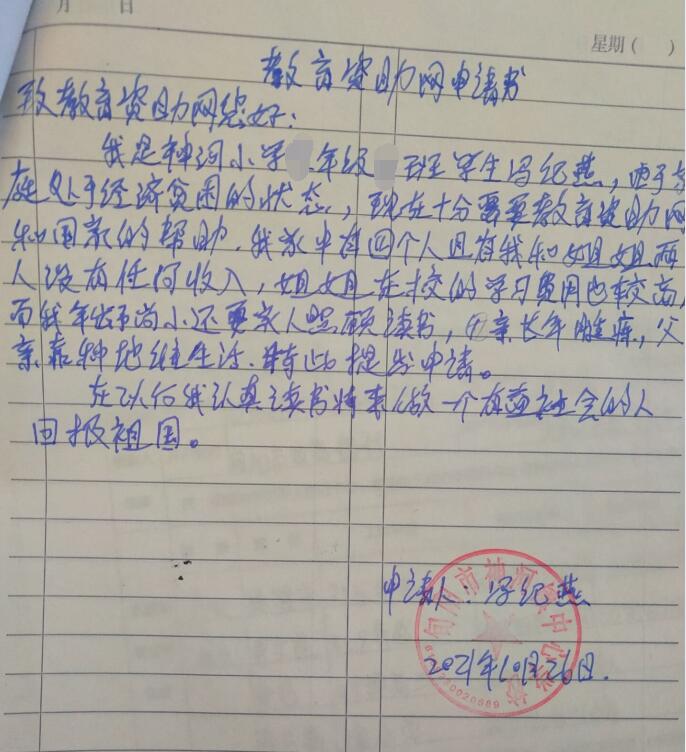 月 日
星期( )
教育资助网申请书
致教育资助网您好:
我是神河小学 年级 班学生冯纪燕,由于家
庭处于经济贫困的状态,现在十分需要教育资助网
和国家的帮助.我家中有四个人且有我和姐姐两
人没有任何收入,姐姐在校的学习费用也较高,
而我年龄尚小还要家人照顾读书,母亲长年 病,父
亲靠种地维生活.特此提出申请。
在以后我认真读书将来做一个有益社会的人
回报祖国。
申请人:冯纪燕
2021年10月26日.
旬阳市神河镇中心学校